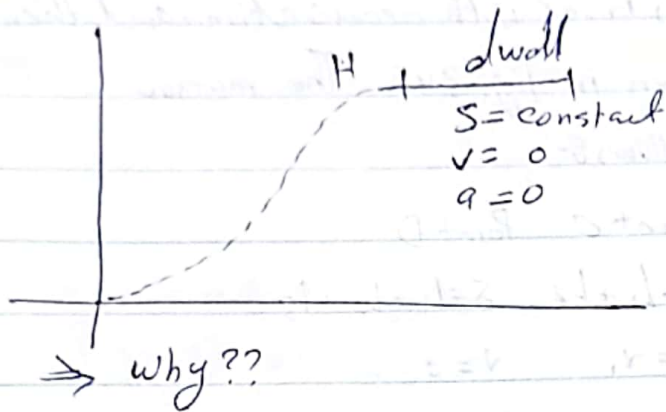 H
dwell
S = constant
v = 0
a = 0
⇒ why??